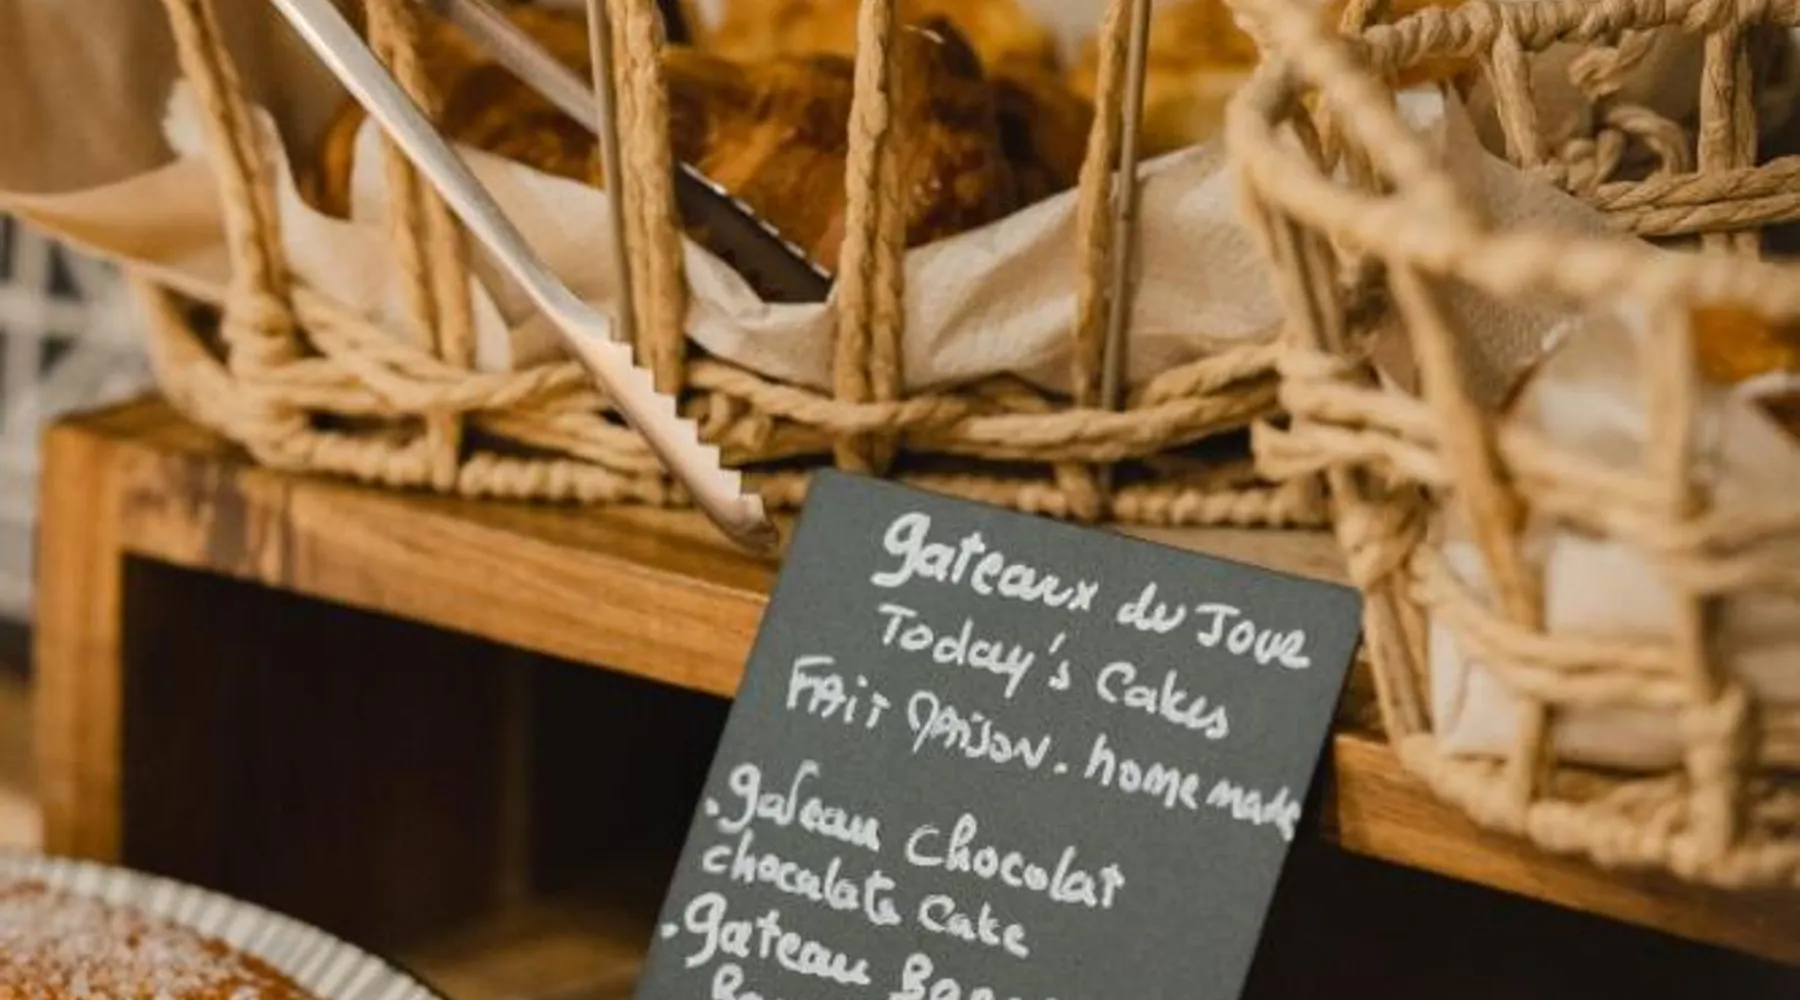 gateaux du Jour
Today's Cakes
FAit MAison. home made
.gateau chocolat
chocolate Cake
.gateau